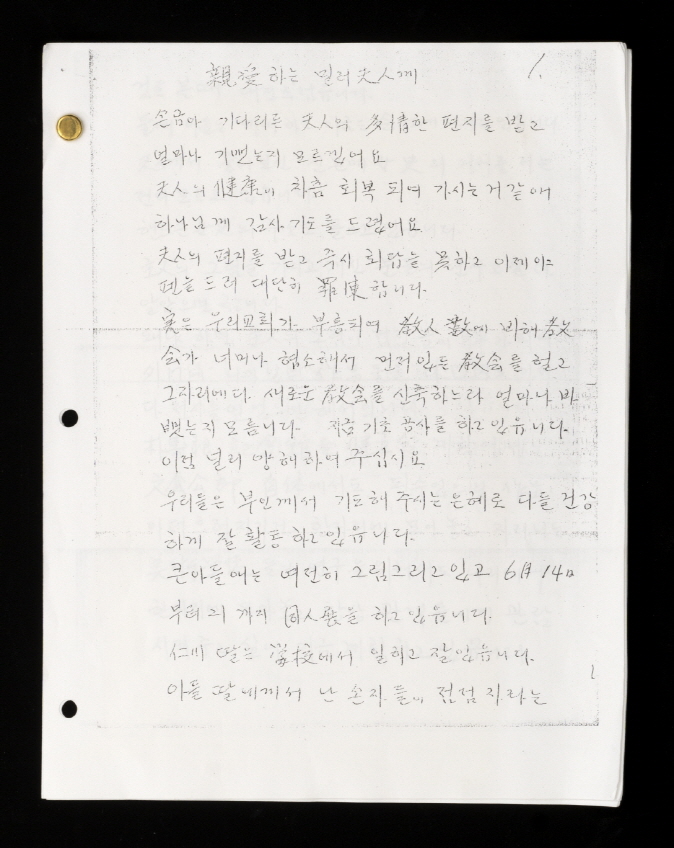 親愛하는 밀러 夫人께
1.
손곱아 기다리든 夫人의 多情한 편지를 받고
얼마나 기뻣는지 모르겠어요
夫人의 健康이 차츰 회복 되여 가시는거 같애
하나님께 감사 기도를 드렸어요
夫人의 편지를 받고 즉시 회답을 못하고 이제야
펜을 드려 대단히 罪悚합니다.
実은 우리교회가 부흥되여 敎人 數에 비해 敎
会가 너머나 협소해서 먼저있든 敎会를 헐고
그자리에다 새로운 敎会를 신축하느라 얼마나 바
뻣는지 모릅니다. 지금 기초 공사를 하고 있읍니다.
이점 널리 양해하여 주십시요
우리들은 부인께서 기도해 주시는 은혜로 다들 건강
하게 잘 활동하고 있읍니다.
큰아들애는 여전히 그림그리고 있고 6月 14日
부터 21 까지 個人展을 하고 있읍니다.
仁川 딸도 學校에서 일하고 잘있읍니다.
아들 딸네께서 난 손자들이 점점 자라는